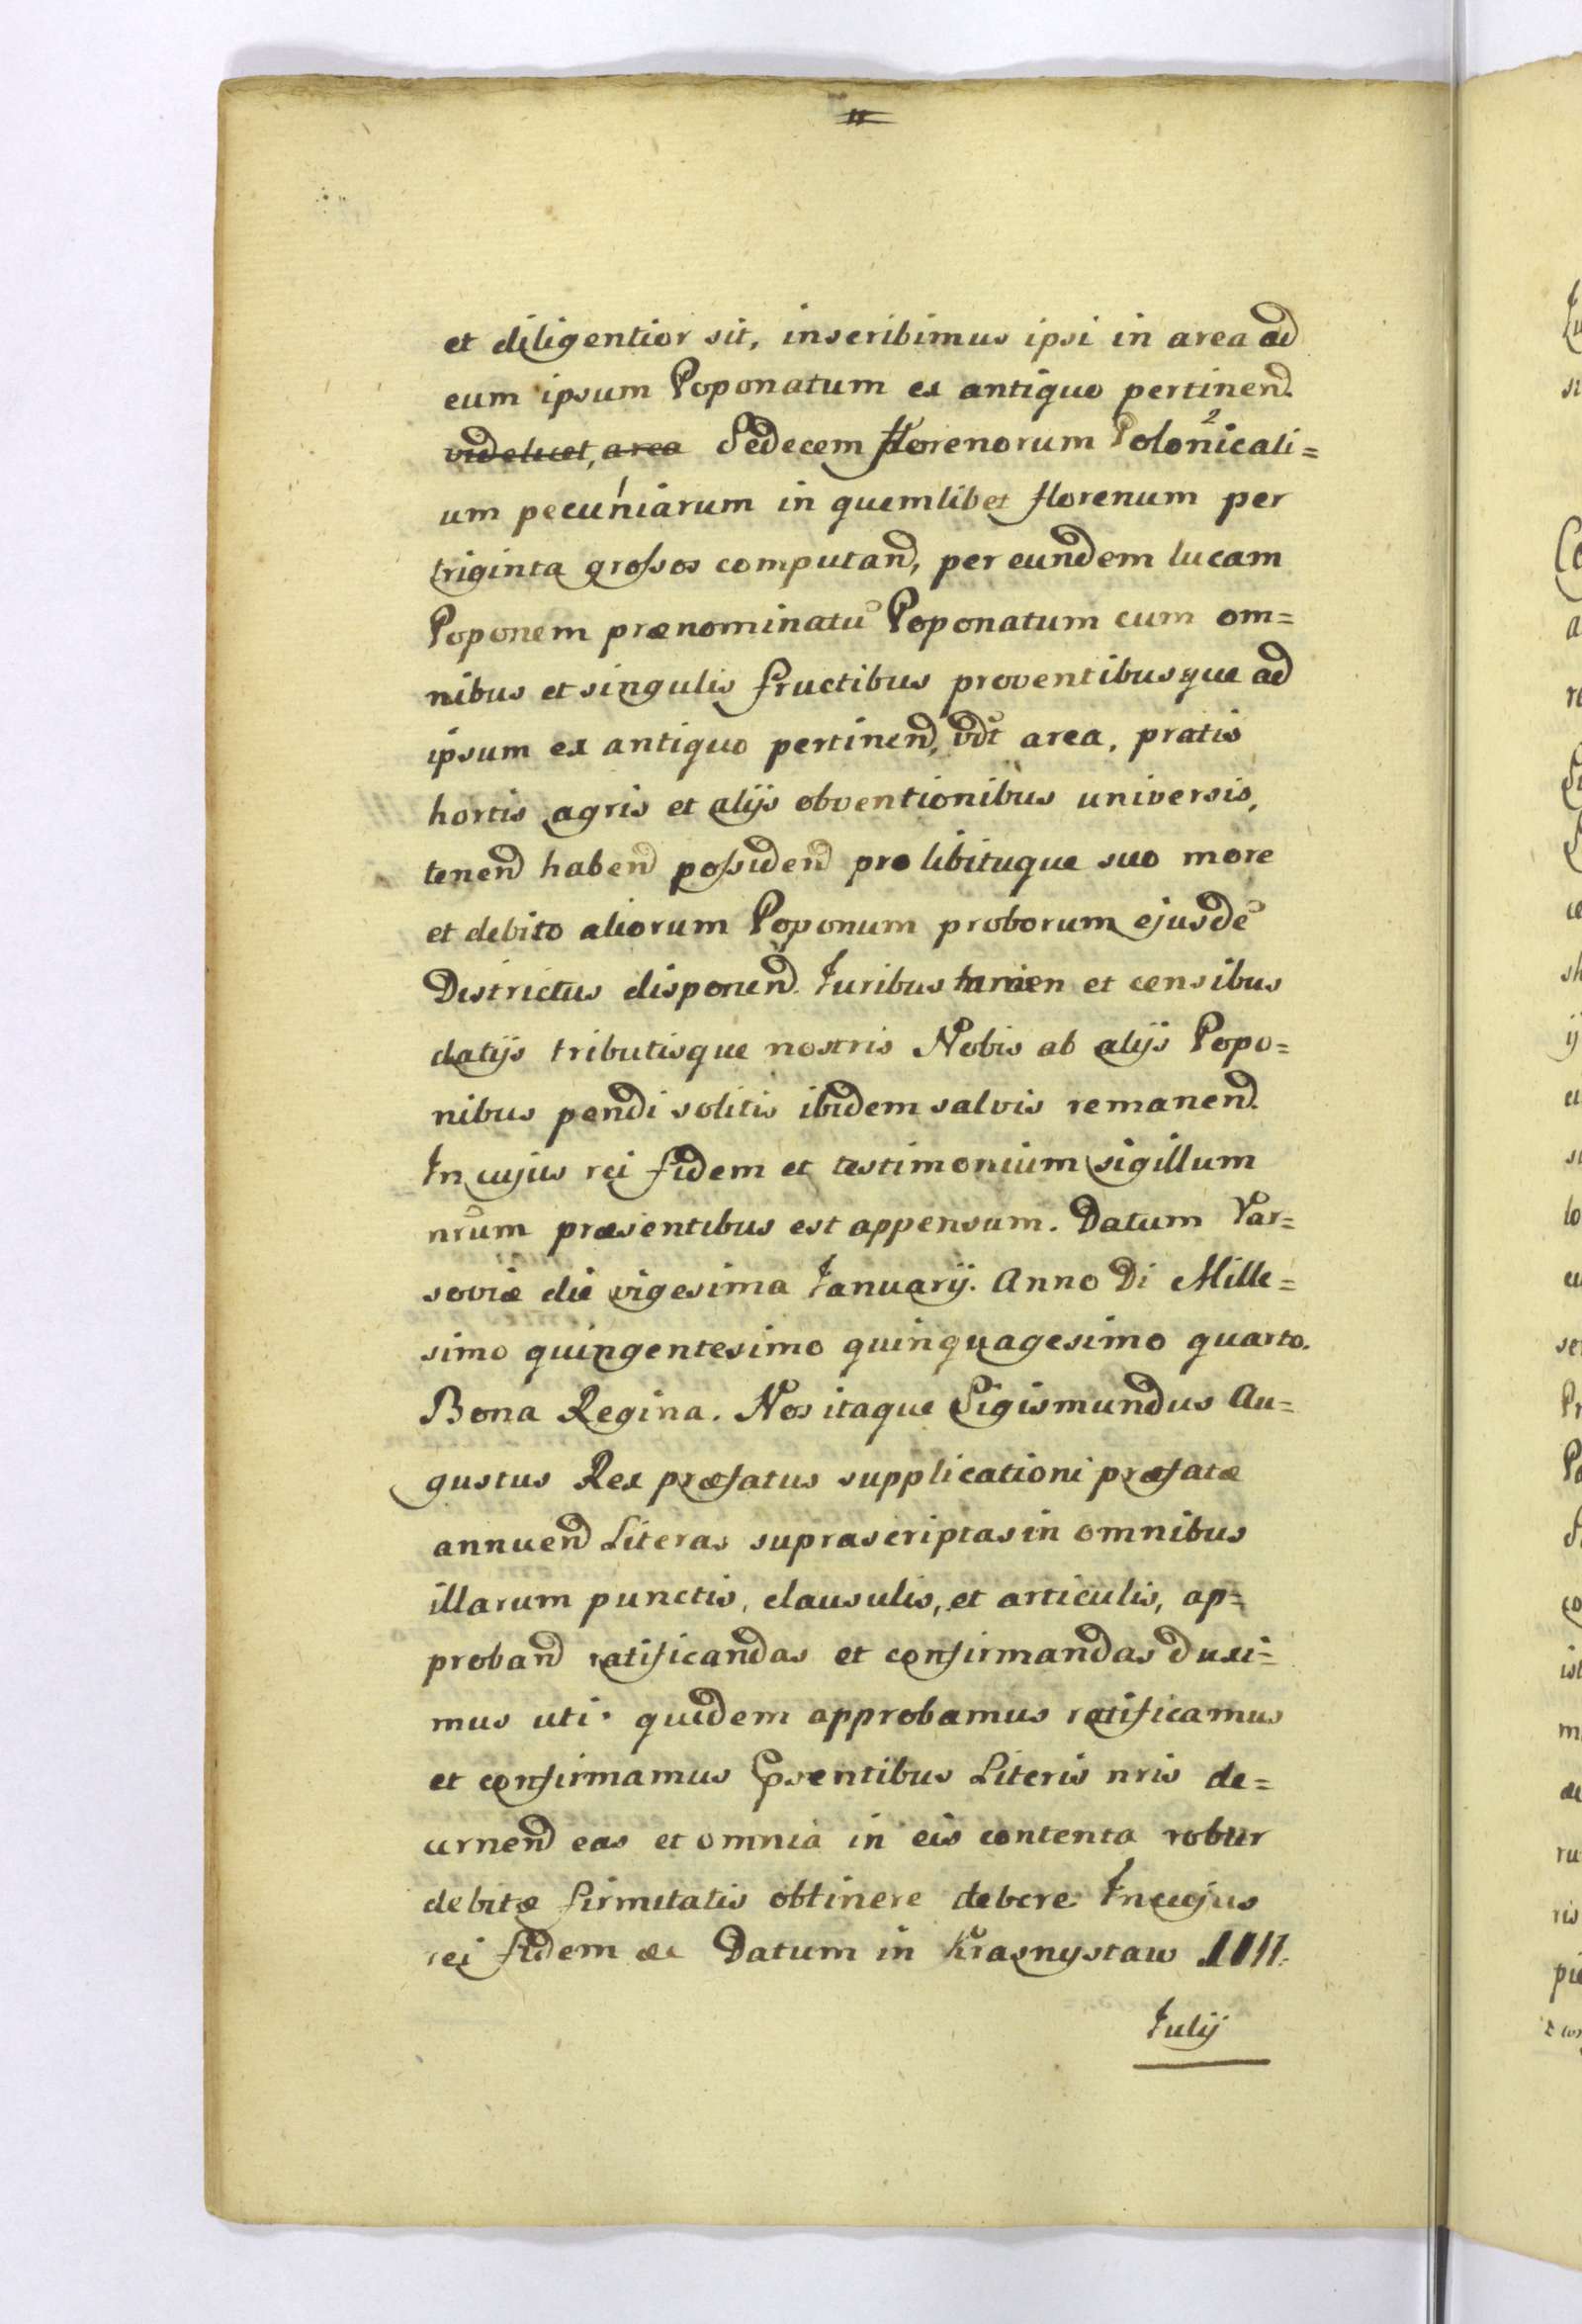 et diligentior sit, inscribimus ipsi in area ad
eum ipsum Poponatum ex antiquo pertinend.
videlicet, area Sedecem florenorum Polonicali=
um pecuniarum in quemlibet florenum per
triginta grossos computand, per eundem lucam
Poponem prænominatu Poponatum cum om=
nibus et singulis fructibus proventibusque ad
ipsum ex antiquo pertinend, vdt area, pratis
hortis agris et alijs obventionibus universis,
tenend habend possidend pro libituque suo more
et debito aliorum Poponum proborum ejusde
Districtus disponend. Iuribus tamen et censibus
datijs tributisque nostris Nobis ab alijs Popo=
nibus pendi solitis ibidem salvis remanend.
In cujus rei fidem et testimonium sigillum
nrum præsentibus est appensum. Datum Var=
soviæ die vigesima Ianuarij. Anno Di Mille=
simo quingentesimo quinquagesimo quarto.
Bona Regina. Nos itaque Sigismundus Au=
gustus Rex præfatus supplicationi præfatæ
annuend Literas suprascriptas in omnibus
illarum punctis, clausulis, et articulis, ap=
proband ratificandas et confirmandas duxi=
mus uti quidem approbamus ratificamus
et confirmamus psentibus Literis nris de=
cernend eas et omnia in eis contenta robur
debitæ firmitatis obtinere debere. In cujus
rei fidem &c Datum in Krasnystaw
Iulij